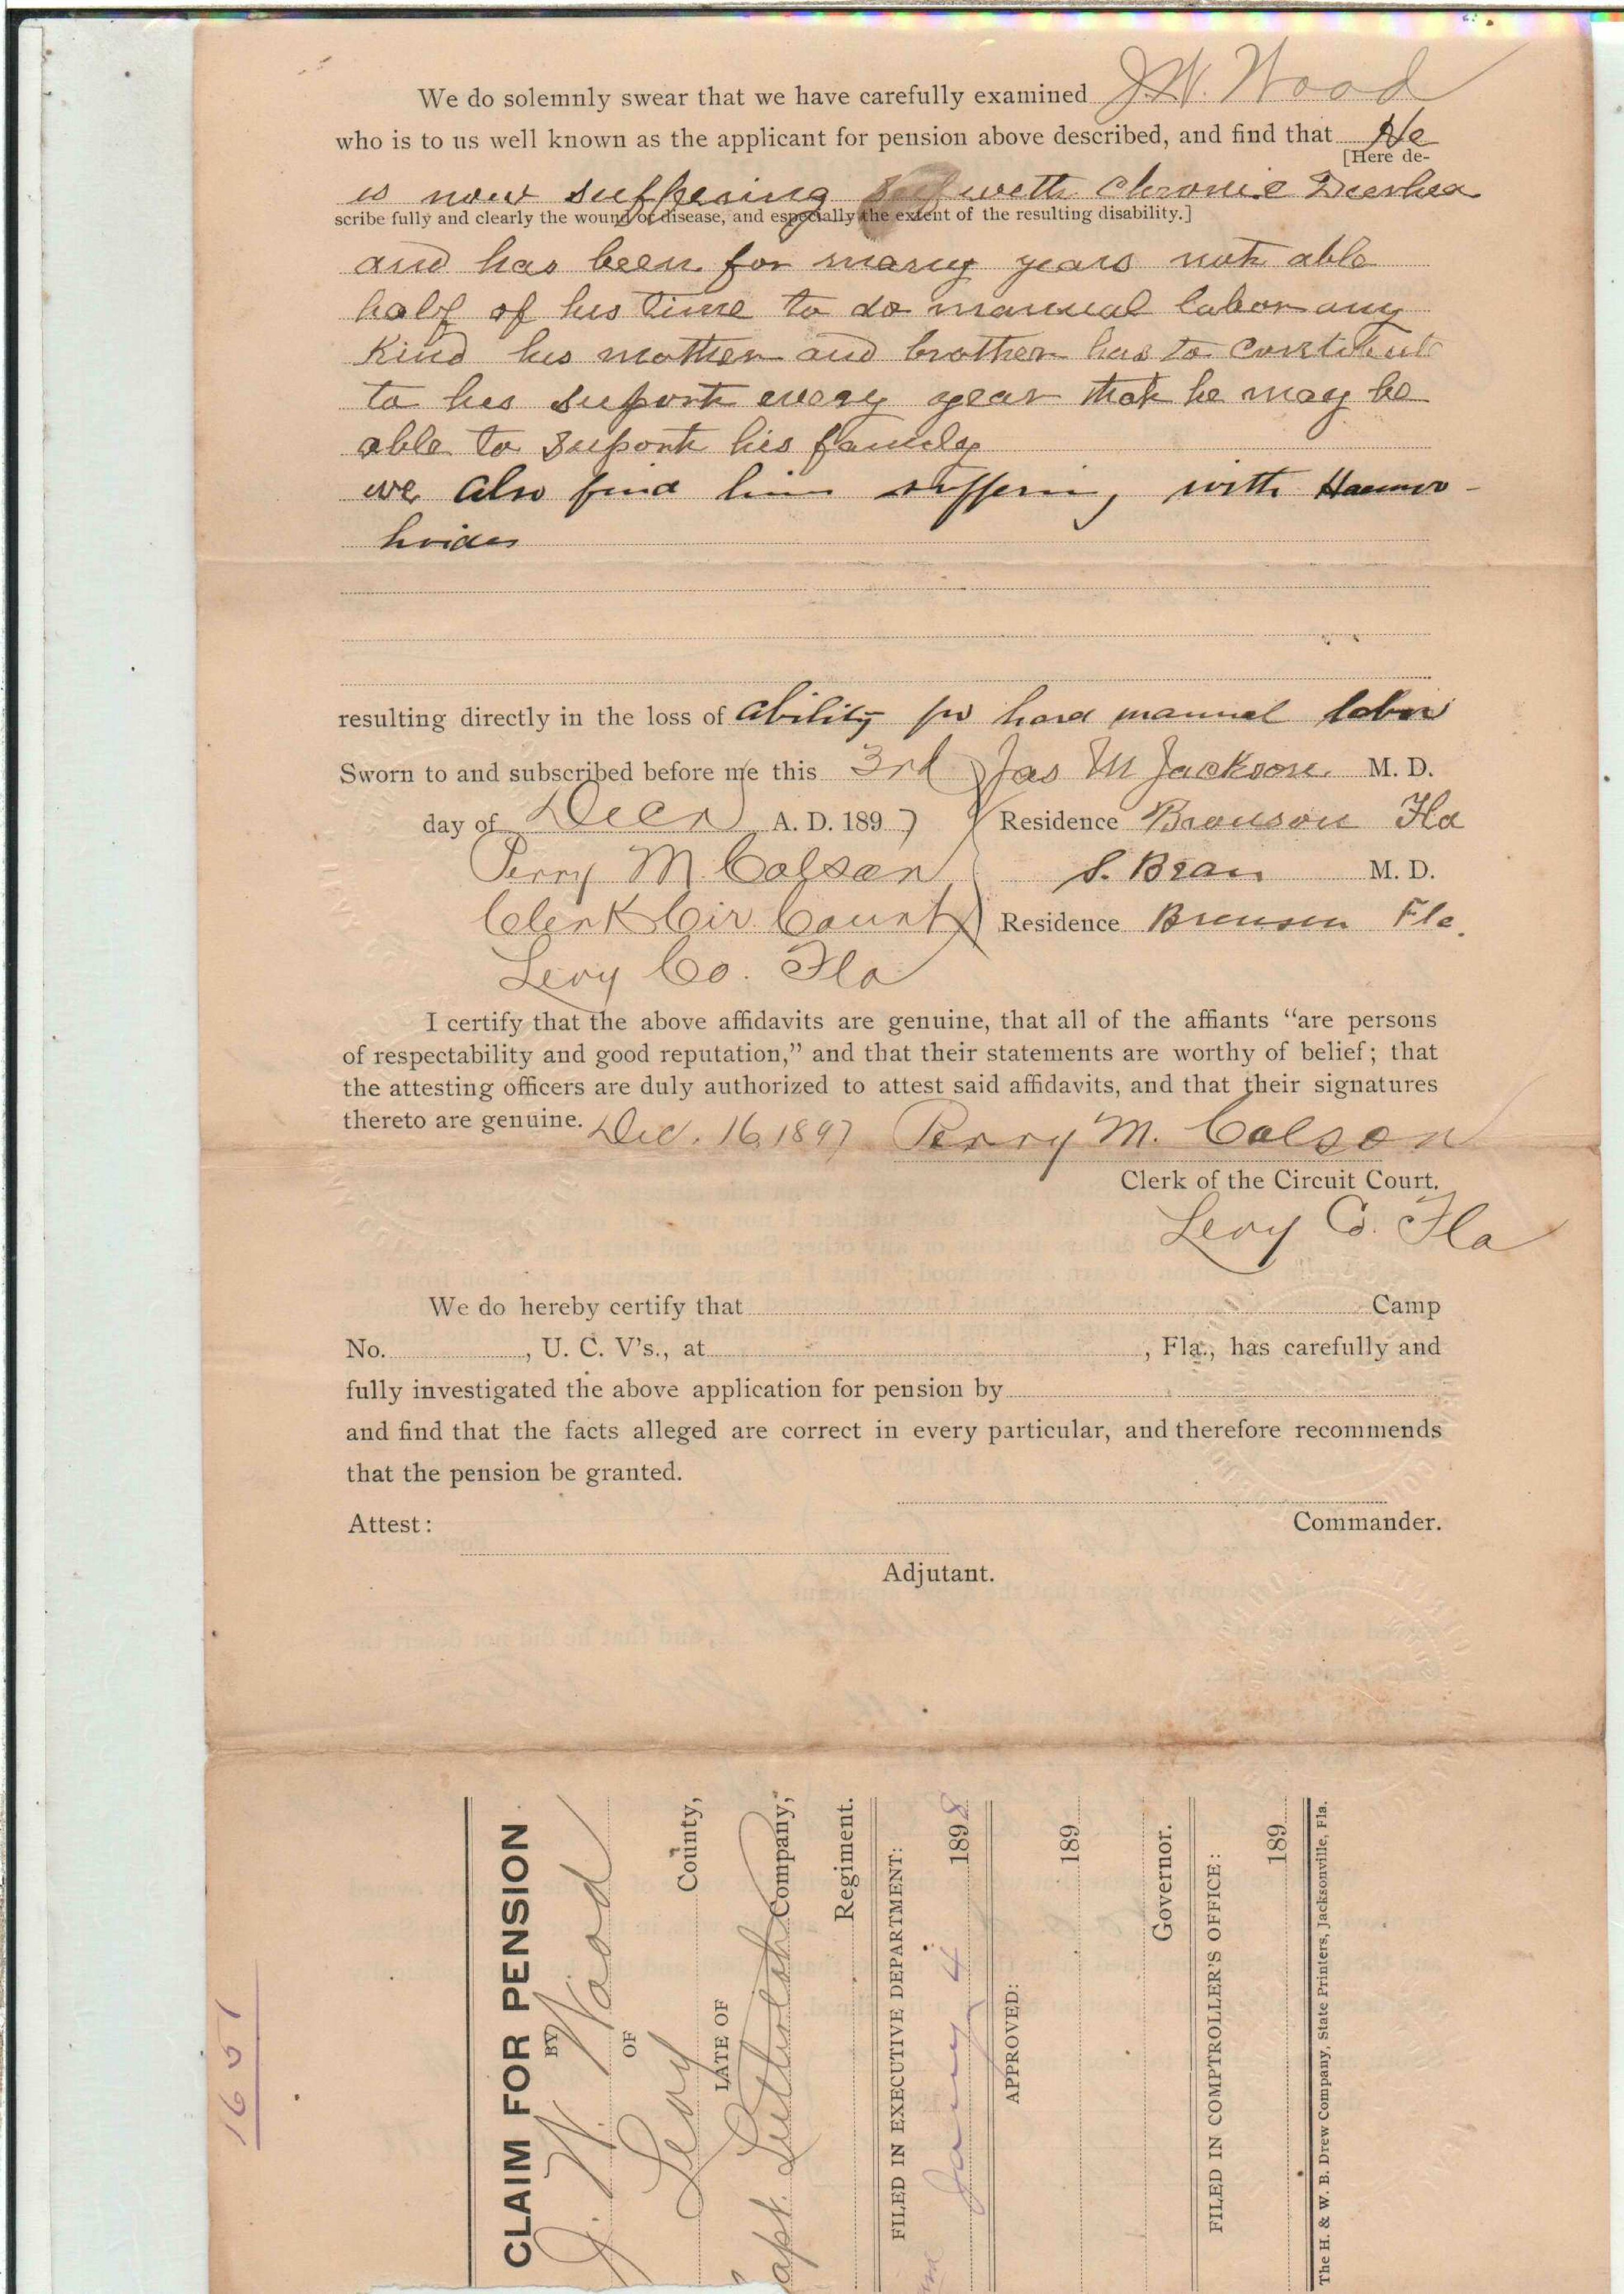 We do solemnly swear that we have carefully examined J. W. Wood
who is to us well known as the applicant for pension above described, and find that He
[Here de-
is now suffering with Chronic Dierhea
scribe fully and clearly the wound or disease, and especially the extent of the resulting disability.]
and has been for many years not able
half of his time to do manual labor any
Kind his mother and brother has to contribute
to his suport every year that he may be
able to Suport his family
we also find him suffering with Haemor-
hoides
resulting directly in the loss of ability for hard manuel labor
Sworn to and subscribed before me this 3rd Jas M Jackson M. D.
day of Decr A. D. 1897 Residence Bronson Fla
Perry M Colson S. Bean M. D.
Clerk Cir Court Residence Bronson Fla.
Levy Co. Fla
I certify that the above affidavits are genuine, that all of the affiants “are persons
of respectability and good reputation,” and that their statements are worthy of belief; that
the attesting officers are duly authorized to attest said affidavits, and that their signatures
thereto are genuine. Dec. 16, 1897 Perry M. Colson
Clerk of the Circuit Court.
Levy Co. Fla
We do hereby certify that Camp
No. , U. C. V's., at , Fla., has carefully and
fully investigated the above application for pension by
and find that the facts alleged are correct in every particular, and therefore recommends
that the pension be granted.
Attest: Commander.
Adjutant.
CLAIM FOR PENSION
BY
J. W. Wood
OF
Levy County,
LATE OF
Capt. Company,
Regiment.
FILED IN EXECUTIVE DEPARTMENT:
Jany 4 1898
APPROVED:
189
Governor.
FILED IN COMPTROLLER'S OFFICE:
189
The H. & W. B. Drew Company, State Printers, Jacksonville, Fla.
1651